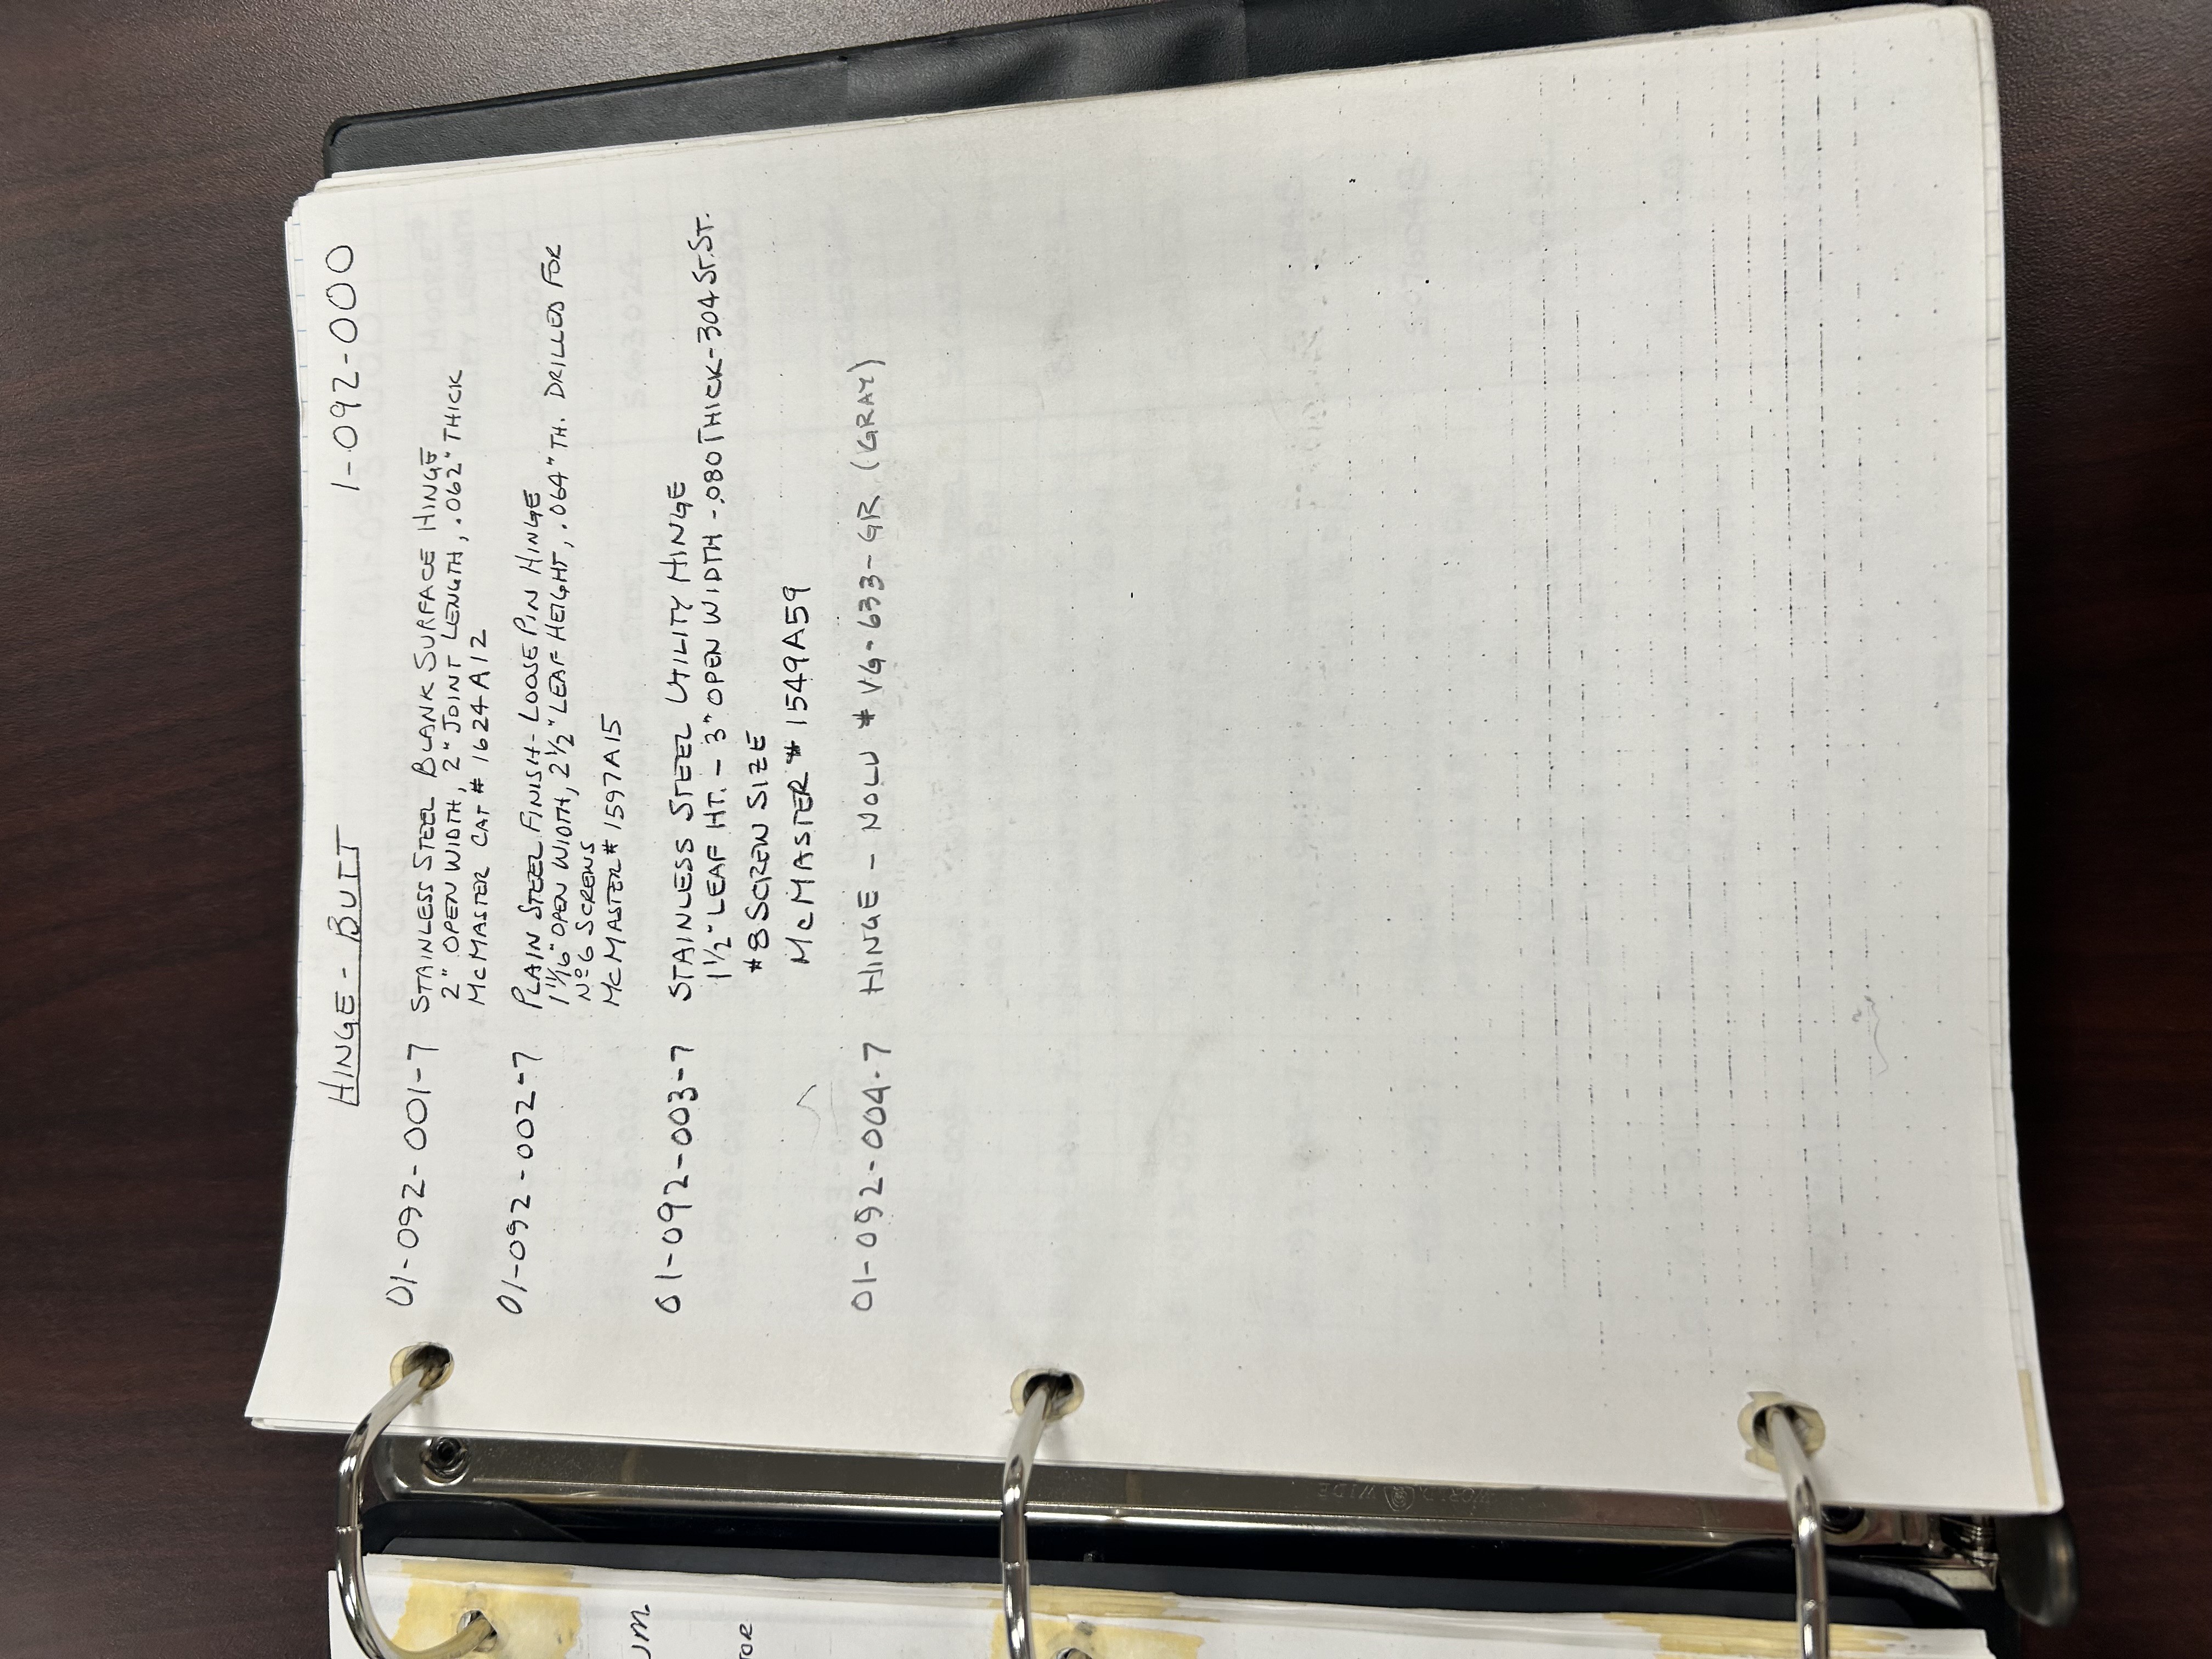 HINGE - BUTT
1-092-000
01-092-001-7 STAINLESS STEEL BLANK SURFACE HINGE
2" OPEN WIDTH, 2" JOINT LENGTH, .062" THICK
MCMASTER CAT # 1624A12
01-092-002-7 PLAIN STEEL FINISH - LOOSE PIN HINGE
1 11/16" OPEN WIDTH, 2 1/2" LEAF HEIGHT, .064" TH. DRILLED FOR
Nº 6 SCREWS
MCMASTER # 1597A15
01-092-003-7 STAINLESS STEEL UTILITY HINGE
1 1/2" LEAF HT. - 3" OPEN WIDTH - .080 THICK - 304 ST. ST.
#8 SCREW SIZE
MCMASTER # 1549A59
01-092-004-7 HINGE - NOLU # VG-633-GR (GRAY)
UM.
TOR
WORLD WIDE